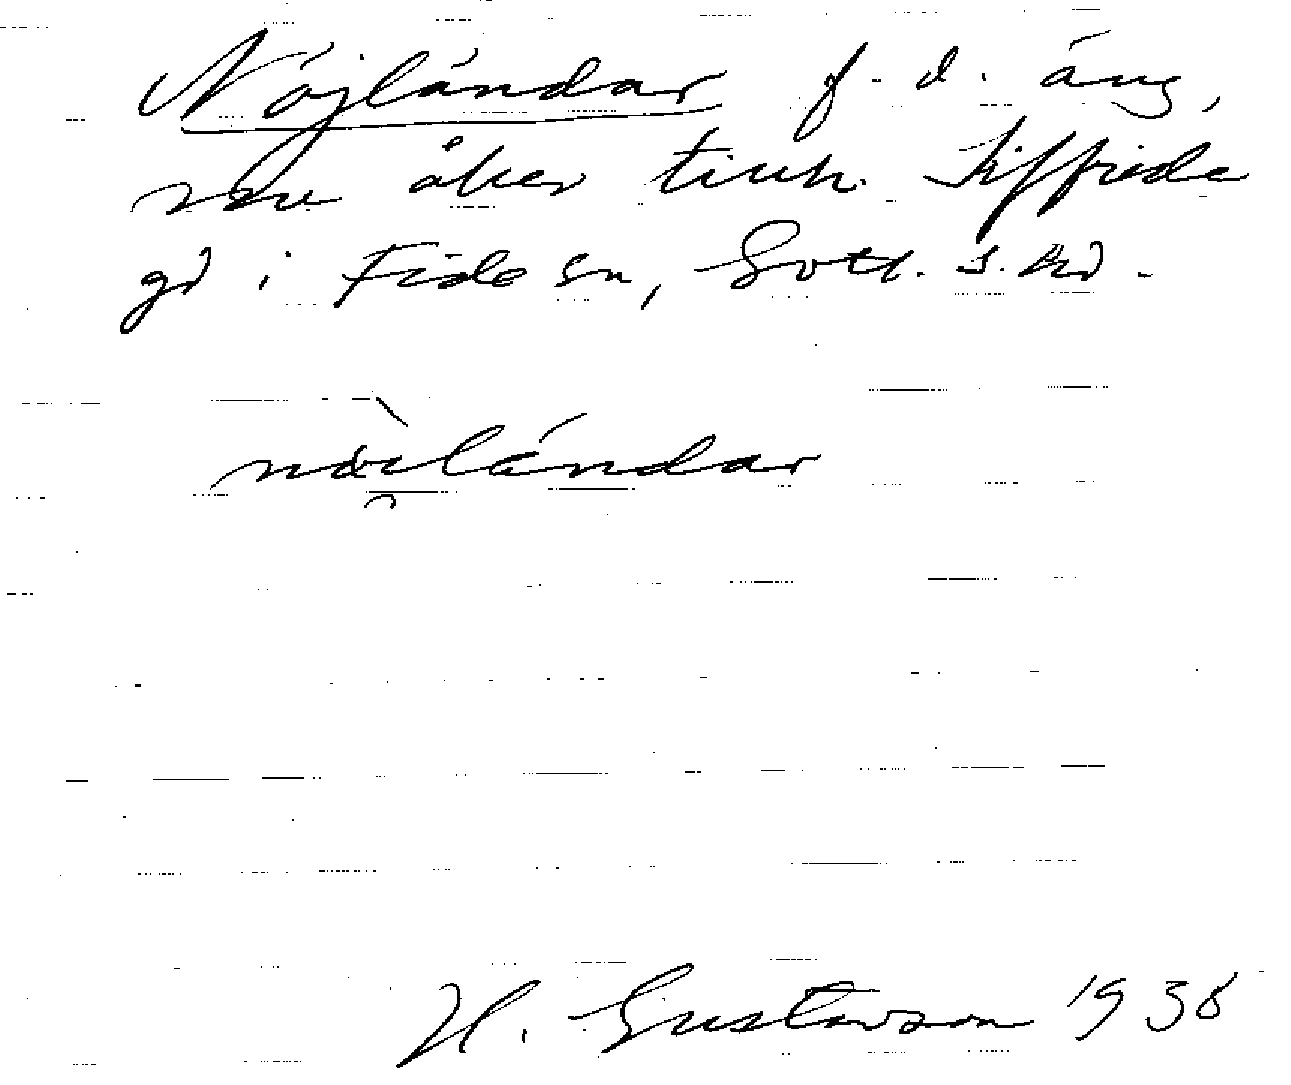 Nöjländar f. d. äng,
nu åker tillh. Siffride
gd i Fide sn, Gotl. s. hd.
nòi̯ländar
H. Gustavson 1938